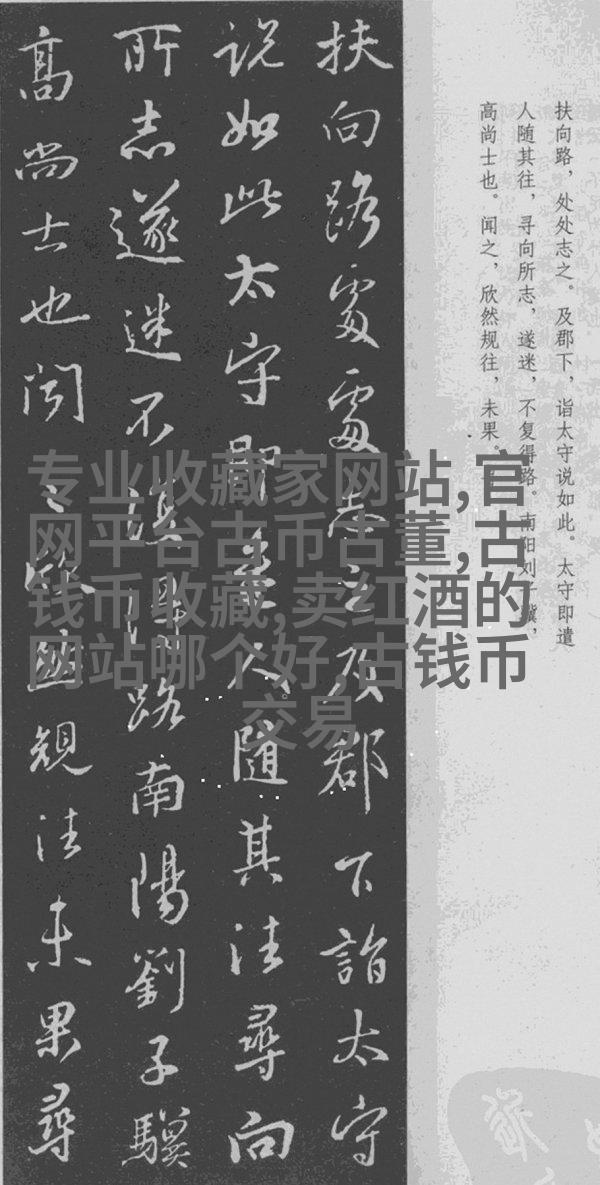 扶向路，处处志之。及郡下，诣太守说如此。太守即遣
人随其往，寻向所志，遂迷，不复得路。南阳刘子骥，
高尚士也。闻之，欣然规往，未果。
扶向路處處志之及郡下詣太守
説如此太守即遣人隨其往尋向
所志遂迷不復得路南陽劉子驥
高尚士也聞之欣然規往未果尋
专业收藏家网站,官
网平台古币古董,古
钱币收藏,卖红酒的
网站哪个好,古钱币
交易